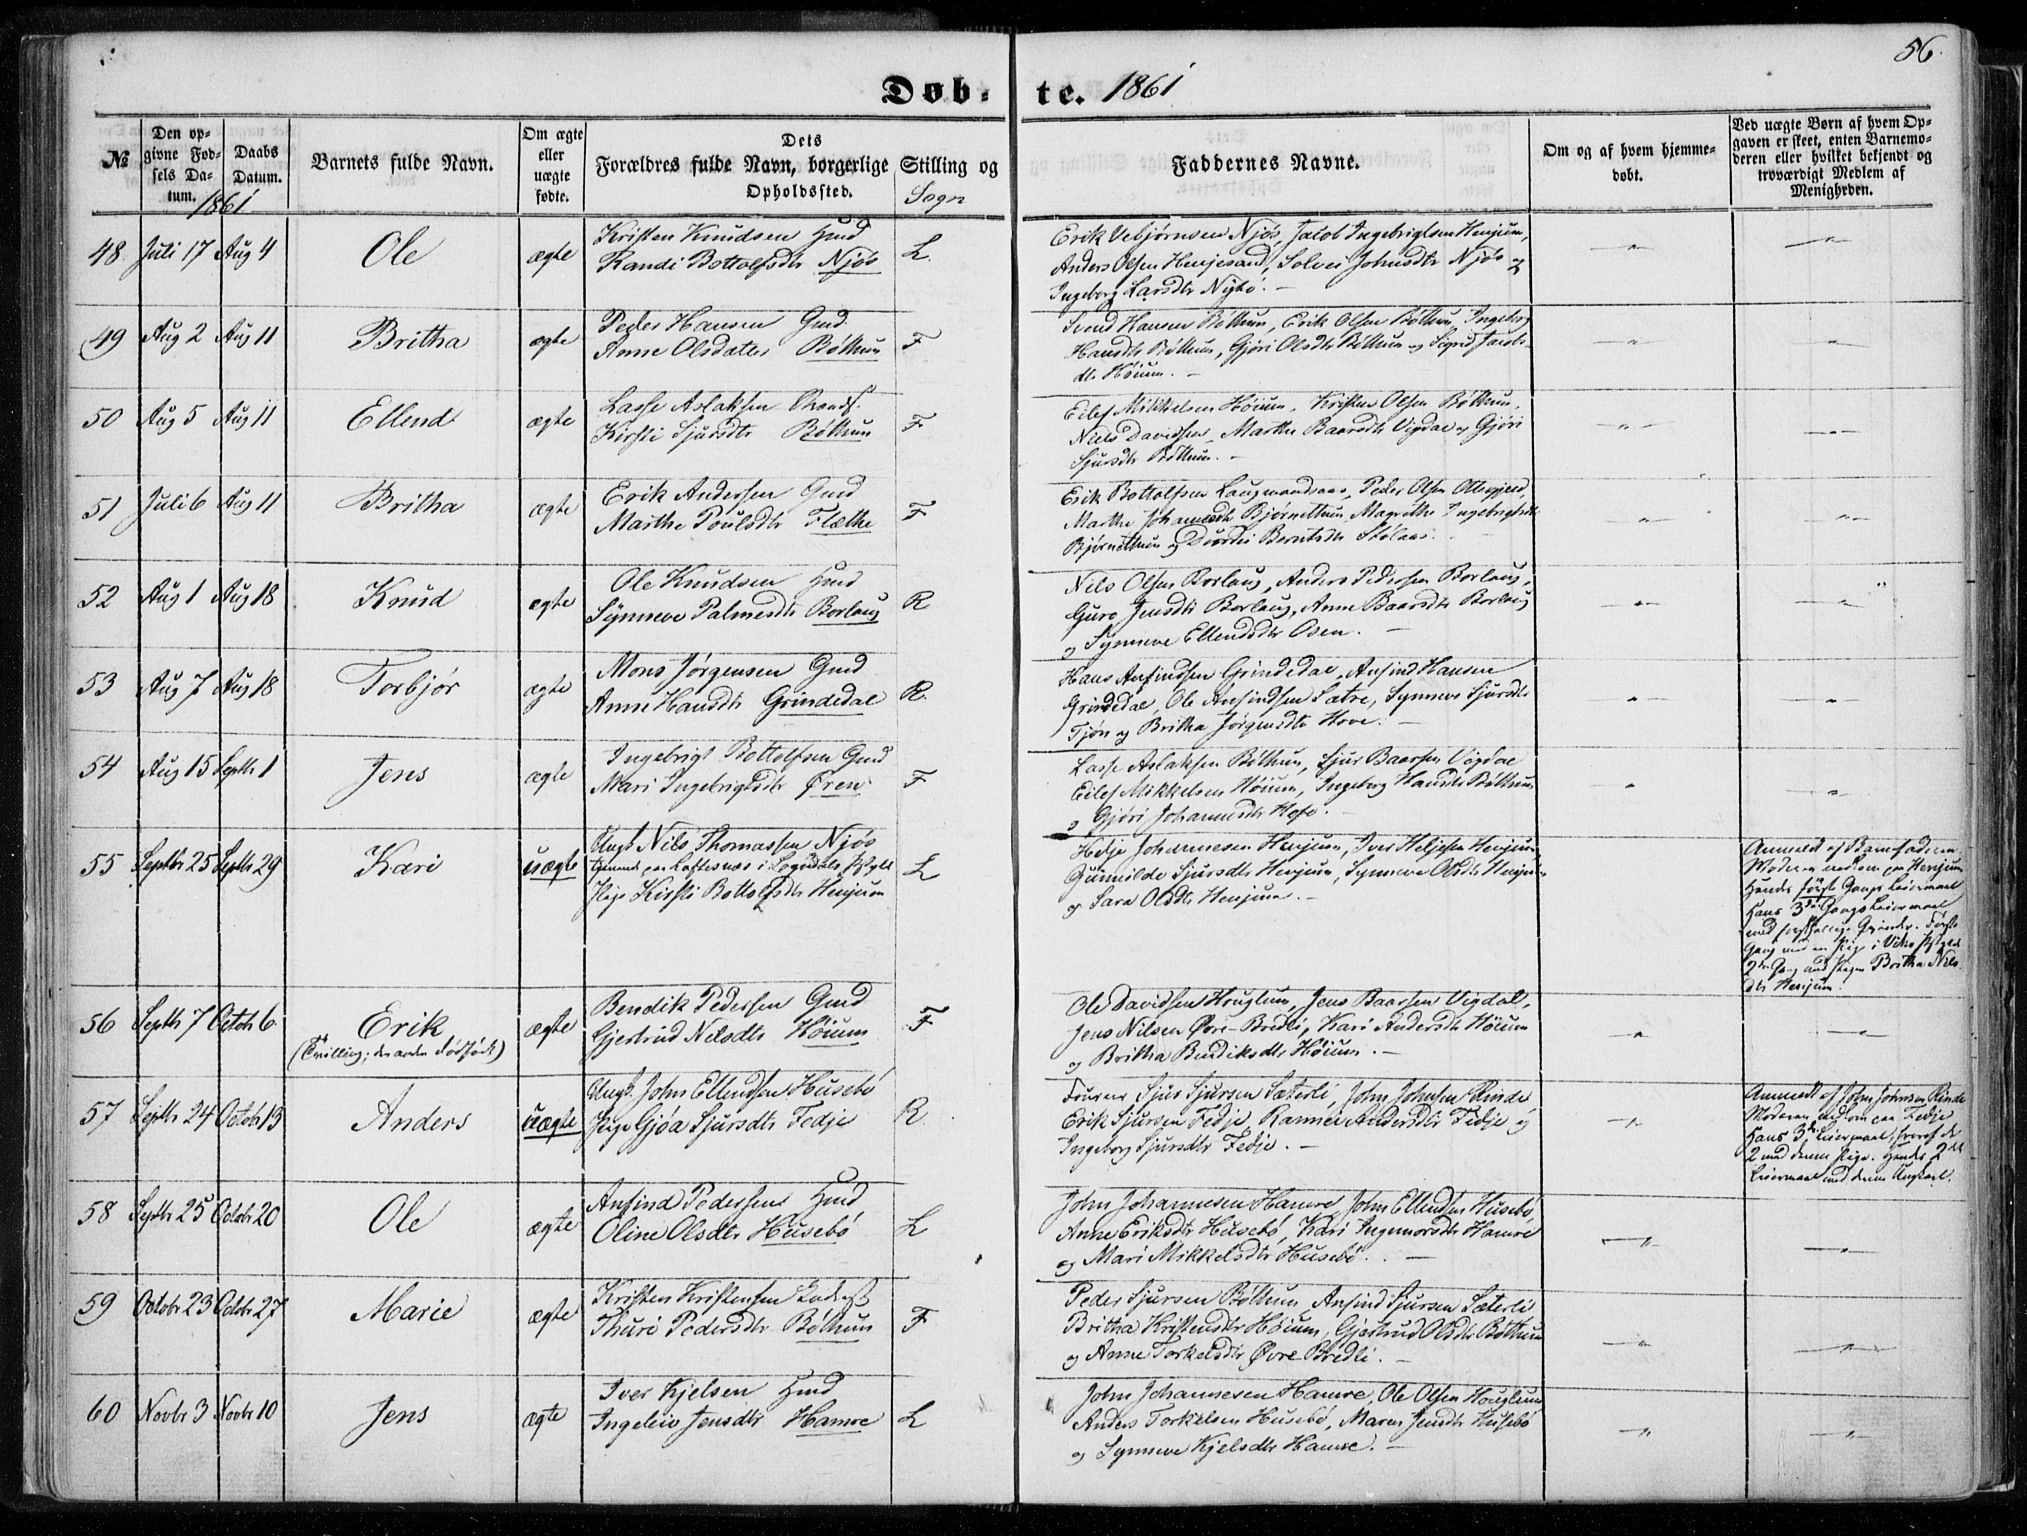 56.
Døb- te. 1861
№
Den op-
givne Fød-
sels Da-
tum.
Daabs
Datum.
1861
Barnets fulde Navn.
Om ægte
eller
uægte
fødte.
Dets
Forældres fulde Navn, borgerlige Stilling og
Opholdssted.
Sogn
Faddernes Navne.
Om og af hvem hjemme-
døbt.
Ved uægte Børn af hvem Op-
gaven er skeet, enten Barnemo-
deren eller hvilket bekjendt og
troværdigt Medlem af
Menigheden.
48. Juli 17 Aug 4 Ole ægte
Kristen Knudsen Hmd
Randi Bottolfsdtr Njøs L.
Erik Vebjørnsen Njøs, Jacob Ingebrigtsen Henjum,
Anders Olsen Henjesand, Solvei Johnsdtr Njøs og
Ingeborg Larsdtr Nybø. -
49 Aug 2 Aug 11 Britha ægte
Peder Hansen Gmd.
Anne Olsdatter Bøthun F
Svend Hansen Bøthun, Erik Olsen Bøthun, Ingeborg
Hansdtr Bøthun, Gjøri Olsdtr Bøthun og Sigrid Jacobs-
dtr Høium. -
50 Aug 5 Aug 11 Ellend ægte
Lasse Aslaksen
Kirsti Sjursdtr Bøthun F
Eilef Mikkelsen Høium, Kristen Olsen Bøthun,
Niels Davidsen, Marthe Baarsdtr Vigdal og Gjøri
Sjursdtr Bøthun. -
51 Juli 6 Aug 11 Britha ægte
Erik Andersen Gmd
Marthe Poulsdtr Flæthe F
Erik Bottolfsen Peder Olsen
Marthe Johannesdtr Bjørnethun, Magrethe Ingebrigtsdtr
Bjørnethun og Berntsdtr Stølaas.
52 Aug 1 Aug 18 Knud ægte
Ole Knudsen Hmd
Synneve Palmesdtr Borlaug R
Nels Olsen Borlaug, Anders Pedersen Borlaug,
Guro Jensdtr Borlaug, Anne Baarsdtr Borlaug
og Synneve Ellendsdtr Osen. -
53 Aug 7 Aug 18 Torbjør ægte
Mons Jørgensen Gmd
Anne Hansdtr Grindedal R.
Hans Anfindsen Grindedal, Anfind Hansen
Grindedal, Ole Anfindsen Sætre, Synneve Sjursdtr
Tjøn og Britha Jørgensdtr Hove. -
54 Aug 15 Septbr 1 Jens ægte
Ingebrigt Bottolfsen Gmd
Mari Ingebrigtsdtr Øren F
Lasse Aslaksen Bøthun, Sjur Baarsen Vigdal
Eilef Mikkelsen Høium, Ingeborg Hansdtr Bøthun
og Gjøri Johannesdtr Hofe. -
55 Septbr 25 Septbr 29 Kari uægte
Ungk Nils Thomassen Njøs
tjenende paa Loftesnæs i Sogndals Præstgjeld
Pige Kirsti Bottolfsdtr Henjum L
Helje Johannesen Henjum, Iver Heljesen Henjum,
Gunnilde Sjursdtr Henjum, Synneve Olsdtr Henjum
og Sara Olsdtr Henjum. -
Anmeldt af Barnefaderen.
Moderen paa Henjum
Hendes første Gangs Leiermaal
Hans 3die Gangs Leiermaal
med forskjellige Qvinder. Første
Gang med en Pige i Viks Præstgjeld
2den Gang med Pigen Britha Nils
dtr Henjum.
56 Septbr 7 Octobr 6. Erik ægte
(Tvilling; den anden dødfødt)
Bendik Pedersen Gmd
Gjertrud Nilsdtr Høium F
Ole Davidsen Houglum, Jens Baarsen Vigdal,
Jens Nilsen Øvre-Bredli, Kari Andersdtr Høium
og Britha Bendiksdtr Høium. -
57 Septbr 24 Octobr 13 Anders uægte
Ungk. John Ellendsen Husebø
Pige Gjøa Sjursdtr Fedje R.
Sjur Sjursen Sæterli, John Johnsen Rinde
Erik Sjursen Fedje, Rannei Andersdtr Fedje og
Ingeborg Sjursdtr Fedje. -
Anmeldt af John Johnsen Rinde
Moderen paa Fedje
Hans 3die Leiermaal, hvoraf de
2 med denne Pige. Hendes 2det
Leiermaal med denne Ungkarl.
58 Septbr 25 Octobr 20 Ole ægte
Anfind Pedersen Hmd
Oline Olsdtr Husebø L
John Johannesen Hamre, John Ellendsen Husebø
Anne Eriksdtr Husebø, Kari Ingemorsdtr Hamre
og Mari Mikkelsdtr Husebø. -
59 Octobr 23 Octobr 27 Marie ægte
Kristen Kristensen
Thuri Pedersdtr Bøthun F
Peder Sjursen Bøthun, Anfind Sjursen Sæterli
Britha Kristensdtr Høium, Gjertrud Olsdtr Bøthun
og Anne Torkelsdtr Øvre Bredli. -
60 Novbr 3 Novbr 10 Jens ægte
Iver Kjelsen Hmd
Ingeleiv Jensdtr Hamre L
John Johannesen Hamre, Ole Olsen Houglum
Anders Torkelsen Husebø, Maren Jensdtr Husebø
og Synneve Kjelsdtr Hamre. -